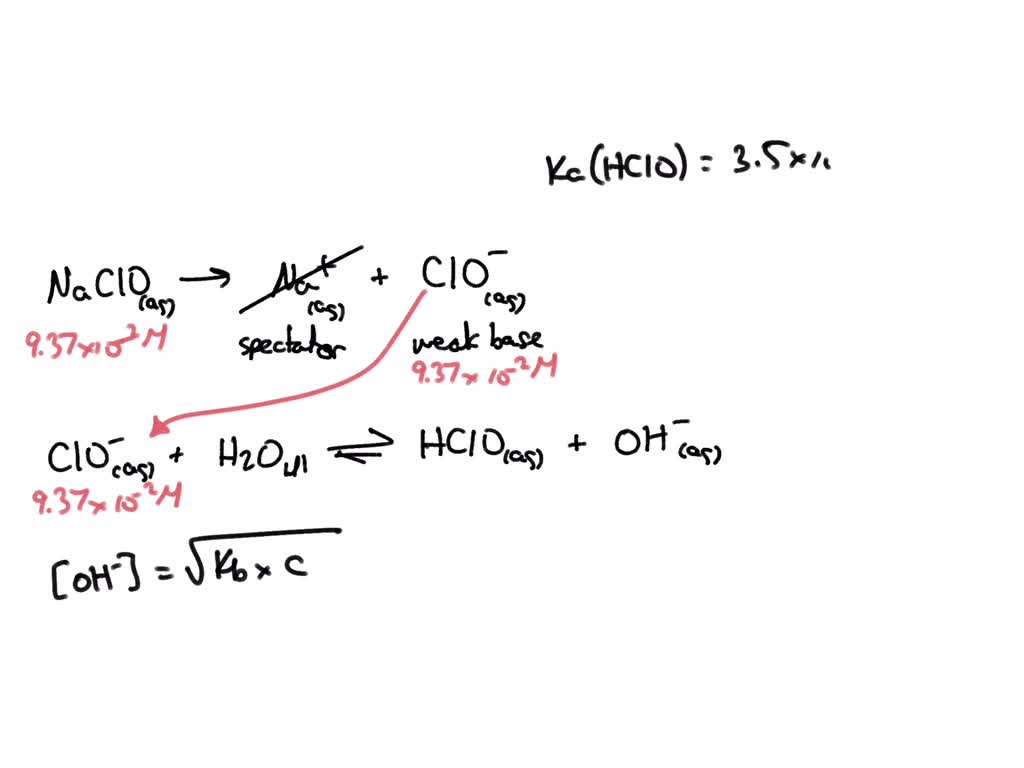 Ka(HClO) = 3.5×1
NaClO(aq) → Na+(aq) + ClO−(aq)
9.37×10−2 M spectator weak base
9.37×10−2 M
ClO−(aq) + H2O(l) ⇌ HClO(aq) + OH−(aq)
9.37×10−2 M
[OH−] = √Kb × C